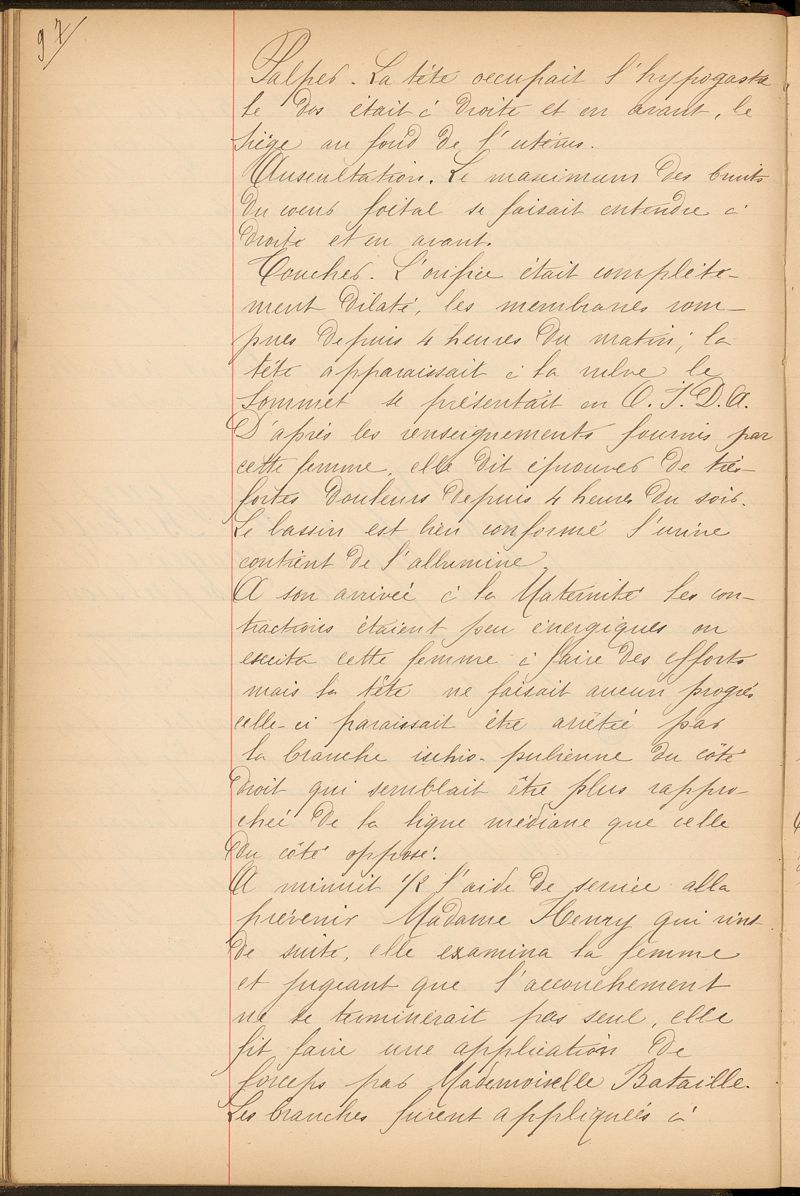 97
Palper. La tête occupait l'hypogastre
le dos était à droite et en avant, le
siège au fond de l'utérus.
Auscultation. Le maximum des bruits
du cœur fœtal se faisait entendre à
droite et en avant.
Toucher. L'orifice était complète-
ment dilaté, les membranes rom-
pues depuis 4 heures du matin; la
tête apparaissait à la vulve le
sommet se présentait en O.I.D.A.
D'après les renseignements fournis par
cette femme, elle dit éprouver de très
fortes douleurs depuis 4 heures du soir.
Le bassin est bien conformé l'urine
contient de l'albumine.
A son arrivée à la Maternité les con-
tractions étaient peu énergiques on
excita cette femme à faire des efforts
mais la tête ne faisait aucun progrès
celle-ci paraissait être arrêtée par
la branche ischio-pubienne du côté
droit qui semblait être plus rappro-
chée de la ligne médiane que celle
du côté opposé.
A minuit 1/2 l'aide de service alla
prévenir Madame Henry qui vint
de suite, elle examina la femme
et jugeant que l'accouchement
ne se terminerait pas seul, elle
fit faire une application de
forceps par Mademoiselle Bataille.
Les branches furent appliquées à